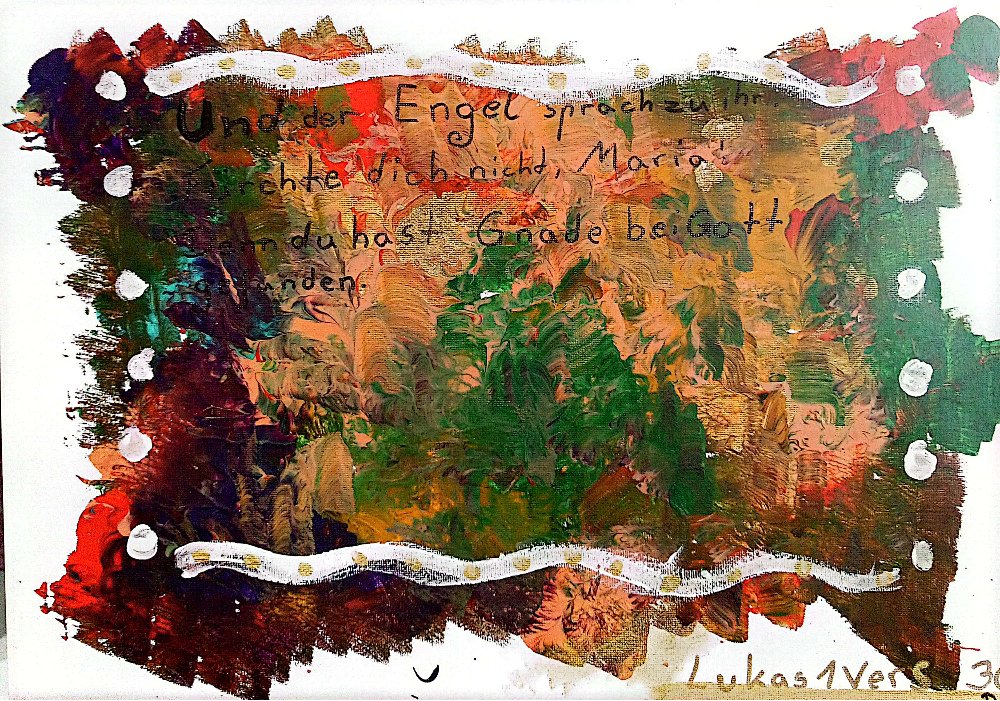 Und der Engel sprach zu ihr.
Fürchte dich nicht, Maria!
Denn du hast Gnade bei Gott
gefunden.
Lukas 1 Vers 30